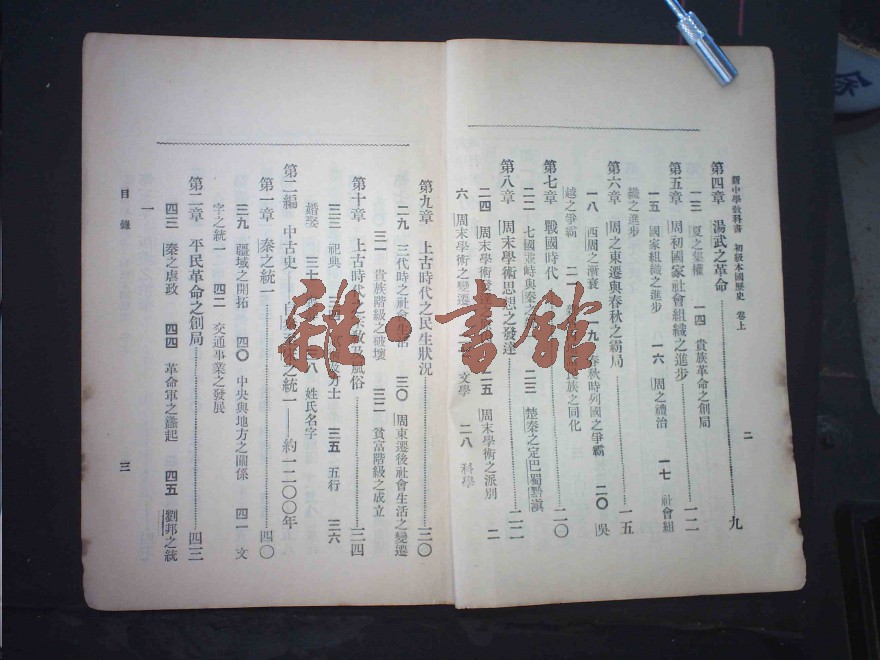 新中學教科書 初級本國歷史 卷上 二
第四章 湯武之革命 九
一三 夏之集權 一四 貴族革命之創局
第五章 周初國家社會組織之進步 一二
一五 國家組織之進步 一六 周之禮治 一七 社會組
織之進步
第六章 周之東遷與春秋之霸局 一五
一八 西周之漸衰 一九 春秋時列國之爭霸 二〇 吳
越之爭霸 二一 族之同化
第七章 戰國時代 二〇
二二 七國並峙與秦之 二三 楚秦之定巴蜀黔滇
第八章 周末學術思想之發達 二二
二四 周末學術 二五 周末學術之派別 二
六 周末學術之變遷 文學 二八 科學
第九章 上古時代之民生狀況 三〇
二九 三代時之社會生活 三〇 周東遷後社會生活之變遷
三一 貴族階級之破壞 三二 貧富階級之成立
第十章 上古時代之宗教及風俗 三四
三三 祀典 三四 方士 三五 五行 三六
婚娶 三八 姓氏名字
第二編 中古史 之統一 約一二〇〇年
第一章 秦之統一 四〇
三九 疆域之開拓 四〇 中央與地方之關係 四一 文
字之統一 四二 交通事業之發展
第二章 平民革命之創局 四三
四三 秦之虐政 四四 革命軍之蠭起 四五 劉邦之統
一
目錄 三
雜·書館